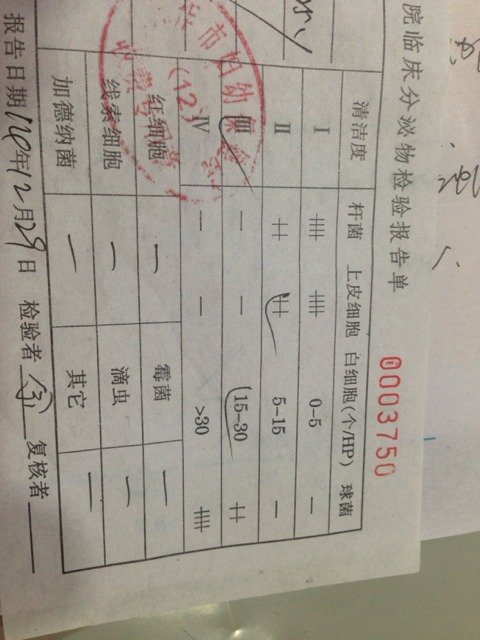 院临床分泌物检验报告单
0003750
清洁度 杆菌 上皮细胞 白细胞(个/HP) 球菌
I 卌 卌 0-5 —
II 卄 卄 5-15 —
III — — 15-30 卄
IV — — >30 卌
红细胞 — 霉菌 —
线索细胞 — 滴虫 —
加德纳菌 — 其它 —
报告日期 年12月29日 检验者 复核者
市妇幼
(12)